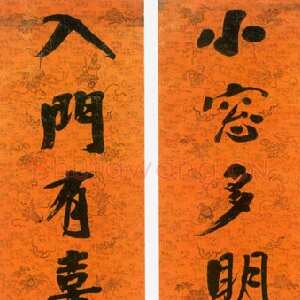 小窓多明
入門有喜